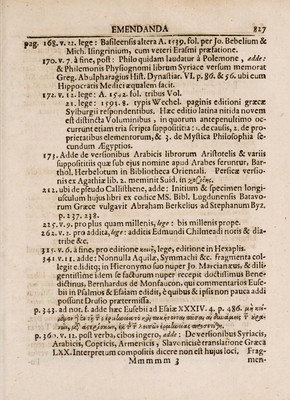 EMENDANDA 827
pag. 168. v. 22. lege: Basileensis altera A. 1539. fol. per Jo. Bebelium &
Mich. Isingrinium, cum veteri Erasmi præfatione.
170. v. 7. à fine, post: Philo quidam laudatur à Polemone, adde:
& Philemonis Physiognomi librum Syriace versum memorat
Greg. Abulpharagius Hist. Dynastiar. VI. p. 86. & 56. ubi cum
Hippocratis Medici æqualem facit.
172. v. 12. lege: A. 1542. fol. tribus Vol.
21. lege: 1593. 8. typis Wechel. paginis editioni græcæ
Sylburgii respondentibus. Hæc editio latina nitida novem
est distincta Voluminibus, in quorum antepenultimo oc-
currunt etiam tria scripta supposititia: 1. de causis, 2. de pro-
prietatibus elementorum, & 3. de Mystica Philosophia se-
cundum Ægyptios.
173. Adde de versionibus Arabicis librorum Aristotelis & variis
supposititiis quæ sub ejus nomine apud Arabes feruntur, Bar-
thol. Herbelotum in Bibliotheca Orientali. Persicæ versio-
nis ex Agathiæ lib. 2. meminit Suid. in
212. ubi de pseudo Callisthene, adde: Initium & specimen longi-
usculum hujus libri ex codice MS. Bibl. Lugdunensis Batavo-
rum Græce vulgavit Abraham Berkelius ad Stephanum Byz.
p. 237. 238.
225. v. 9. pro plus quam millenis, lege: bis millenis prope.
262. v. 2. pro addita, lege: additis Edmundi Chilmeadi notis & dia-
tribe &c.
315. v. 6. à fine, pro editione lege, editione in Hexaplis.
341. v. 11. adde: Nonnulla Aquilæ, Symmachi &c. fragmenta col-
legit e diditq; in Hieronymo suo nuper Jo. Marcianæus, & dili-
gentissime idem se facturum nuper recepit doctissimus Bene-
dictinus, Bernhardus de Monfaucon, qui commentarios Euse-
bii in Psalmos & Esaiam edidit, è quibus & ipsis non pauca addi
possunt Drusio prætermissa.
p. 343. ad not. f. adde hæc Eusebii ad Esaiæ XXXIV. 4. p. 486.
p. 360. v. 12. post verba, cibos ingero, adde: De versionibus Syriacis,
Arabicis, Copticis, Armenicis, Slavonicisè translatione Græca
LXX. Interpretum compositis dicere non est hujus loci. Frag-
Mmmmm 3 men-